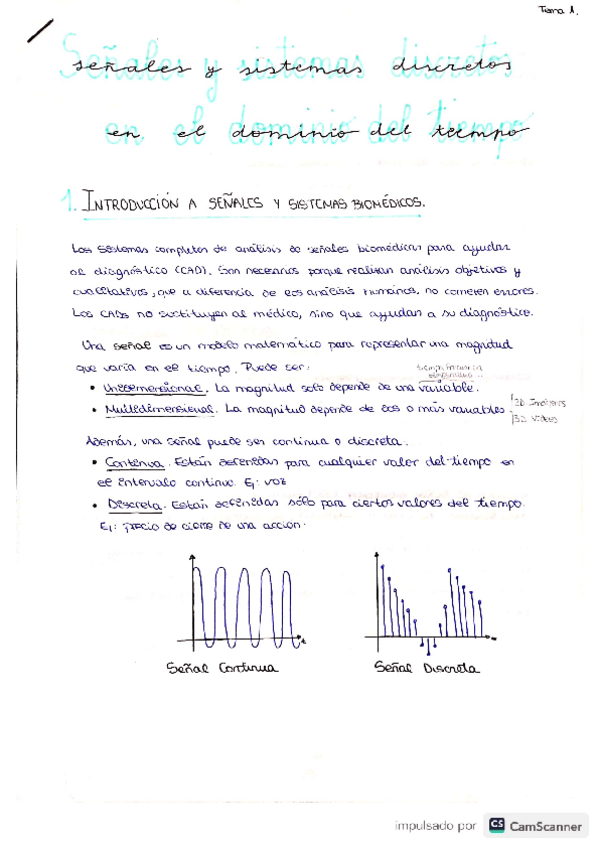 Tema 1.
Señales y sistemas discretos
en el dominio del tiempo
1. INTRODUCCIÓN A SEÑALES Y SISTEMAS BIOMÉDICOS.
Los sistemas completos de análisis de señales biomédicas para ayudar
al diagnóstico (CAD). Son necesarios porque realizan análisis objetivos y
cualitativos, que a diferencia de los análisis humanos, no cometen errores.
Los CADs no sustituyen al médico, sino que ayudan a su diagnóstico.
Una señal es un modelo matemático para representar una magnitud
que varía en el tiempo. Puede ser:
• Unidimensional. La magnitud solo depende de una variable.
• Multidimensional. La magnitud depende de dos o más variables
2D
3D Vídeos
Además, una señal puede ser continua o discreta:
• Continua. Están definidas para cualquier valor del tiempo en
el intervalo continuo. Ej: voz
• Discreta. Están definidas sólo para ciertos valores del tiempo.
Ej: precio de cierre de una acción.
t
Señal Continua
Señal Discreta
impulsado por CS CamScanner